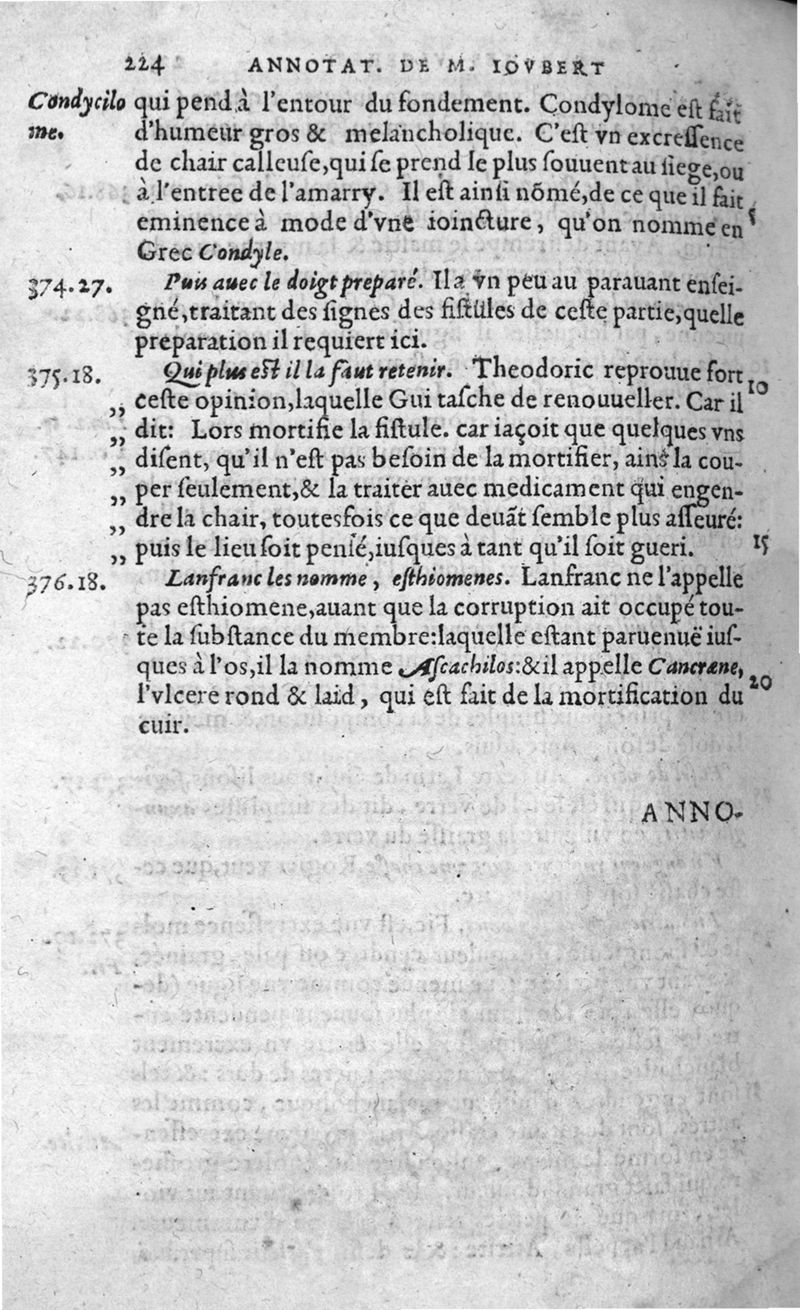 224 ANNOTAT. DE M. IOVBERT
Condycilo qui pend à l'entour du fondement. Condylome eſt fait
me. d'humeur gros & melancholique. C'eſt vn excreſſence
de chair calleuſe, qui ſe prend le plus ſouuent au ſiege, ou
à l'entree de l'amarry. Il eſt ainſi nõmé, de ce que il fait
eminence à mode d'vne ioincture, qu'on nomme en 5
Grec Condyle.
374.27. Puis auec le doigt preparé. Il a vn peu au parauant enſei-
gné, traitant des ſignes des fiſtules de ceſte partie, quelle
preparation il requiert ici.
375.18. Qui plus eſt il la faut retenir. Theodoric reprouue fort 10
,, ceſte opinion, laquelle Gui taſche de renouueller. Car il
,, dit: Lors mortifie la fiſtule. car iaçoit que quelques vns
,, diſent, qu'il n'eſt pas beſoin de la mortifier, ains la cou-
,, per ſeulement, & la traiter auec medicament qui engen-
,, dre la chair, toutesfois ce que deuãt ſemble plus aſſeuré:
,, puis le lieu ſoit penſé, iuſques à tant qu'il ſoit gueri. 15
376.18. Lanfranc les nomme, eſthiomenes. Lanfranc ne l'appelle
pas eſthiomene, auant que la corruption ait occupé tou-
te la ſubſtance du membre: laquelle eſtant paruenuë iuſ-
ques à l'os, il la nomme Aſcachilos: & il appelle Cancræne, 20
l'vlcere rond & laid, qui eſt fait de la mortification du
cuir.
ANNO-